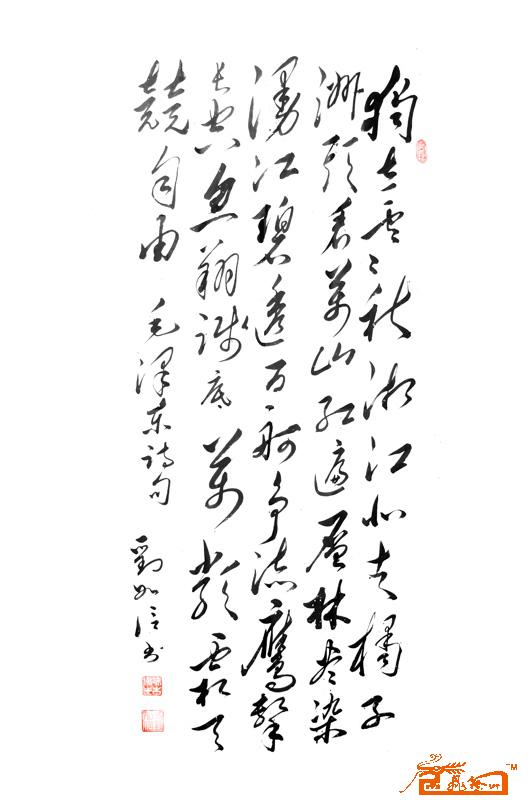 獨立寒秋湘江北去橘子
洲頭看萬山紅遍層林尽染
漫江碧透百舸争流鷹擊
長空魚翔淺底萬類霜天
競自由 毛澤東詩句 劉如信书